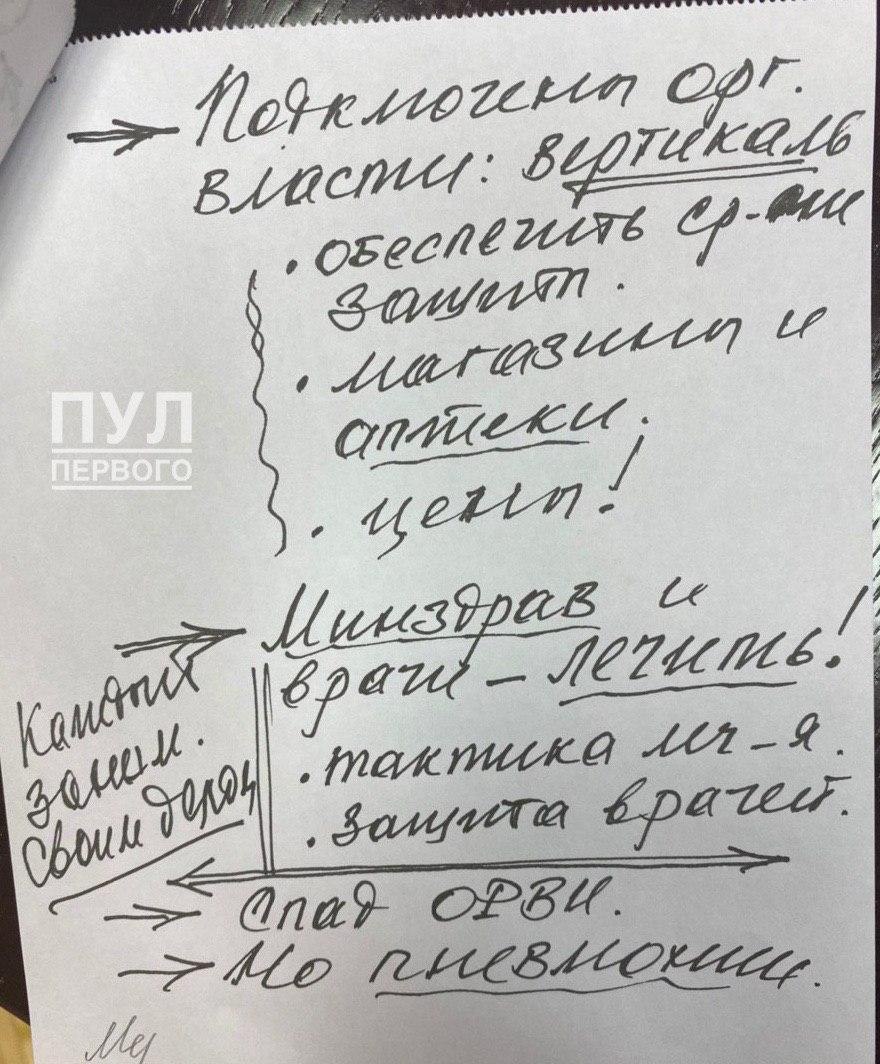 → Подключены орг.
власти: вертикаль
• обеспечить ср-ми
защиты.
• магазины и
аптеки.
• цены!
ПУЛ
ПЕРВОГО
→ Минздрав и
врачи – лечить!
• тактика леч-я.
• защита врачей.
Каждый
заним.
своим делом
→ Спад ОРВИ.
→ Но пневмонии.